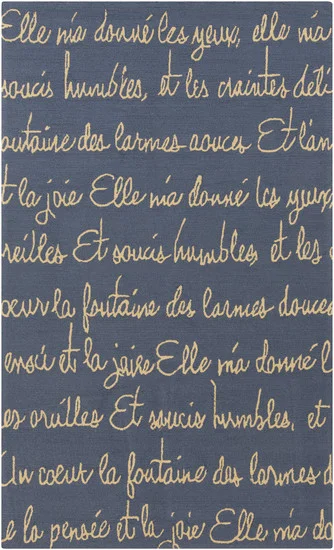 Elle m'a donné les yeux, elle m'a
soucis humbles, et les craintes déli
ontaine des larmes douces Et l'am
t la joie Elle m'a donné les yeux,
reilles Et soucis humbles, et les c
oeur la fontaine des larmes douces
ensée et la joie Elle m'a donné l
es oreilles Et soucis humbles, et
Un coeur la fontaine des larmes d
e la pensée et la joie Elle m'a do